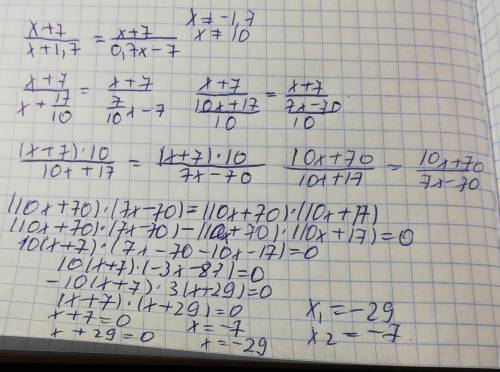 (x+7)/(x+1,7) = (x+7)/(0,7x-7) x≠-1,7
x≠10
(x+7)/(x+17/10) = (x+7)/(7/10x-7) (x+7)/((10x+17)/10) = (x+7)/((7x-70)/10)
((x+7)·10)/(10x+17) = ((x+7)·10)/(7x-70) (10x+70)/(10x+17) = (10x+70)/(7x-70)
(10x+70)·(7x-70)=(10x+70)·(10x+17)
(10x+70)·(7x-70)-(10x+70)·(10x+17)=0
10(x+7)·(7x-70-10x-17)=0
10(x+7)·(-3x-87)=0
-10(x+7)·3(x+29)=0
(x+7)·(x+29)=0 x₁=-29
x+7=0 x=-7 x₂=-7
x+29=0 x=-29